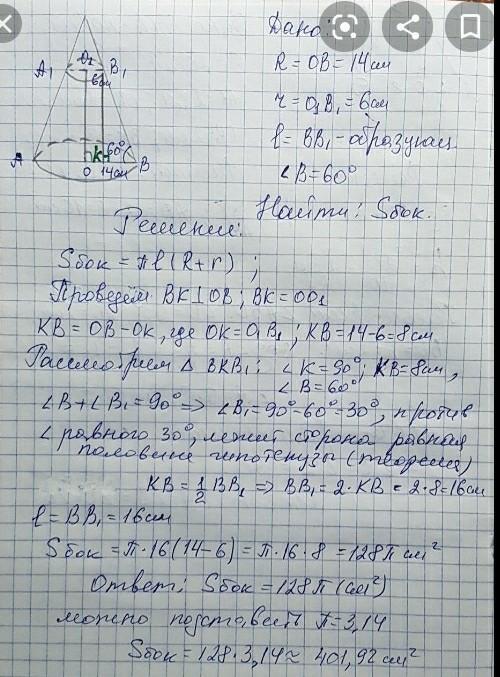 Дано:
R = OB = 14 см
r = O₁B₁ = 6 см
l = BB₁ - образующ.
∠B = 60°
Найти: Sбок.
A₁ O₁ B₁
6см
A K 60° B
O 14см
Решение:
Sбок = πl(R+r) ;
Проведём BK⊥OB ; BK = OO₁
KB = OB - OK, где OK = O₁B₁ ; KB = 14-6 = 8см
Рассмотрим △ BKB₁ : ∠K = 90°, KB = 8см,
∠B = 60°
∠B + ∠B₁ = 90° => ∠B₁ = 90° - 60° = 30°, против
∠ равного 30°, лежит сторона равная
половине гипотенузы (теорема)
KB = 1/2 BB₁ => BB₁ = 2 · KB = 2 · 8 = 16см
l = BB₁ = 16 см
Sбок = π · 16(14-6) = π · 16 · 8 = 128π см²
Ответ: Sбок = 128π (см²)
можно подставить π = 3,14
Sбок = 128 · 3,14 ≈ 401,92 см²